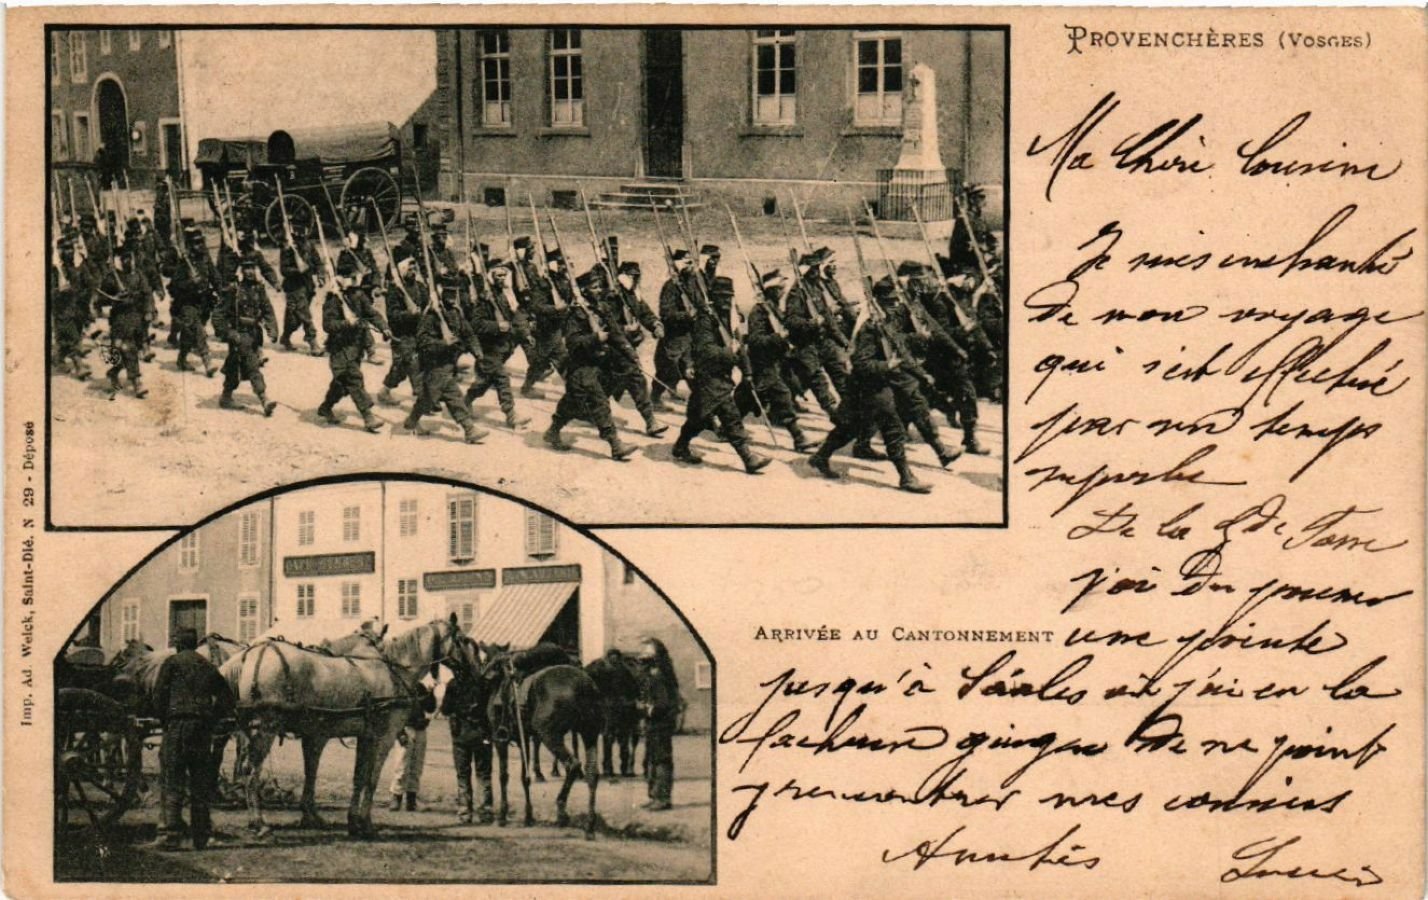 PROVENCHÈRES (VOSGES)
Ma Chère Cousine
Je suis enchanté
de mon voyage
qui s'est effectué
par un temps
superbe
De la Gde
j'ai du pousser
ARRIVÉE AU CANTONNEMENT
une pointe
jusqu'à Saales où j'ai eu la
de ne point
rencontrer mes cousines
Amitiés
Imp. Ad. Weick, Saint-Dié. N 29 - Déposé